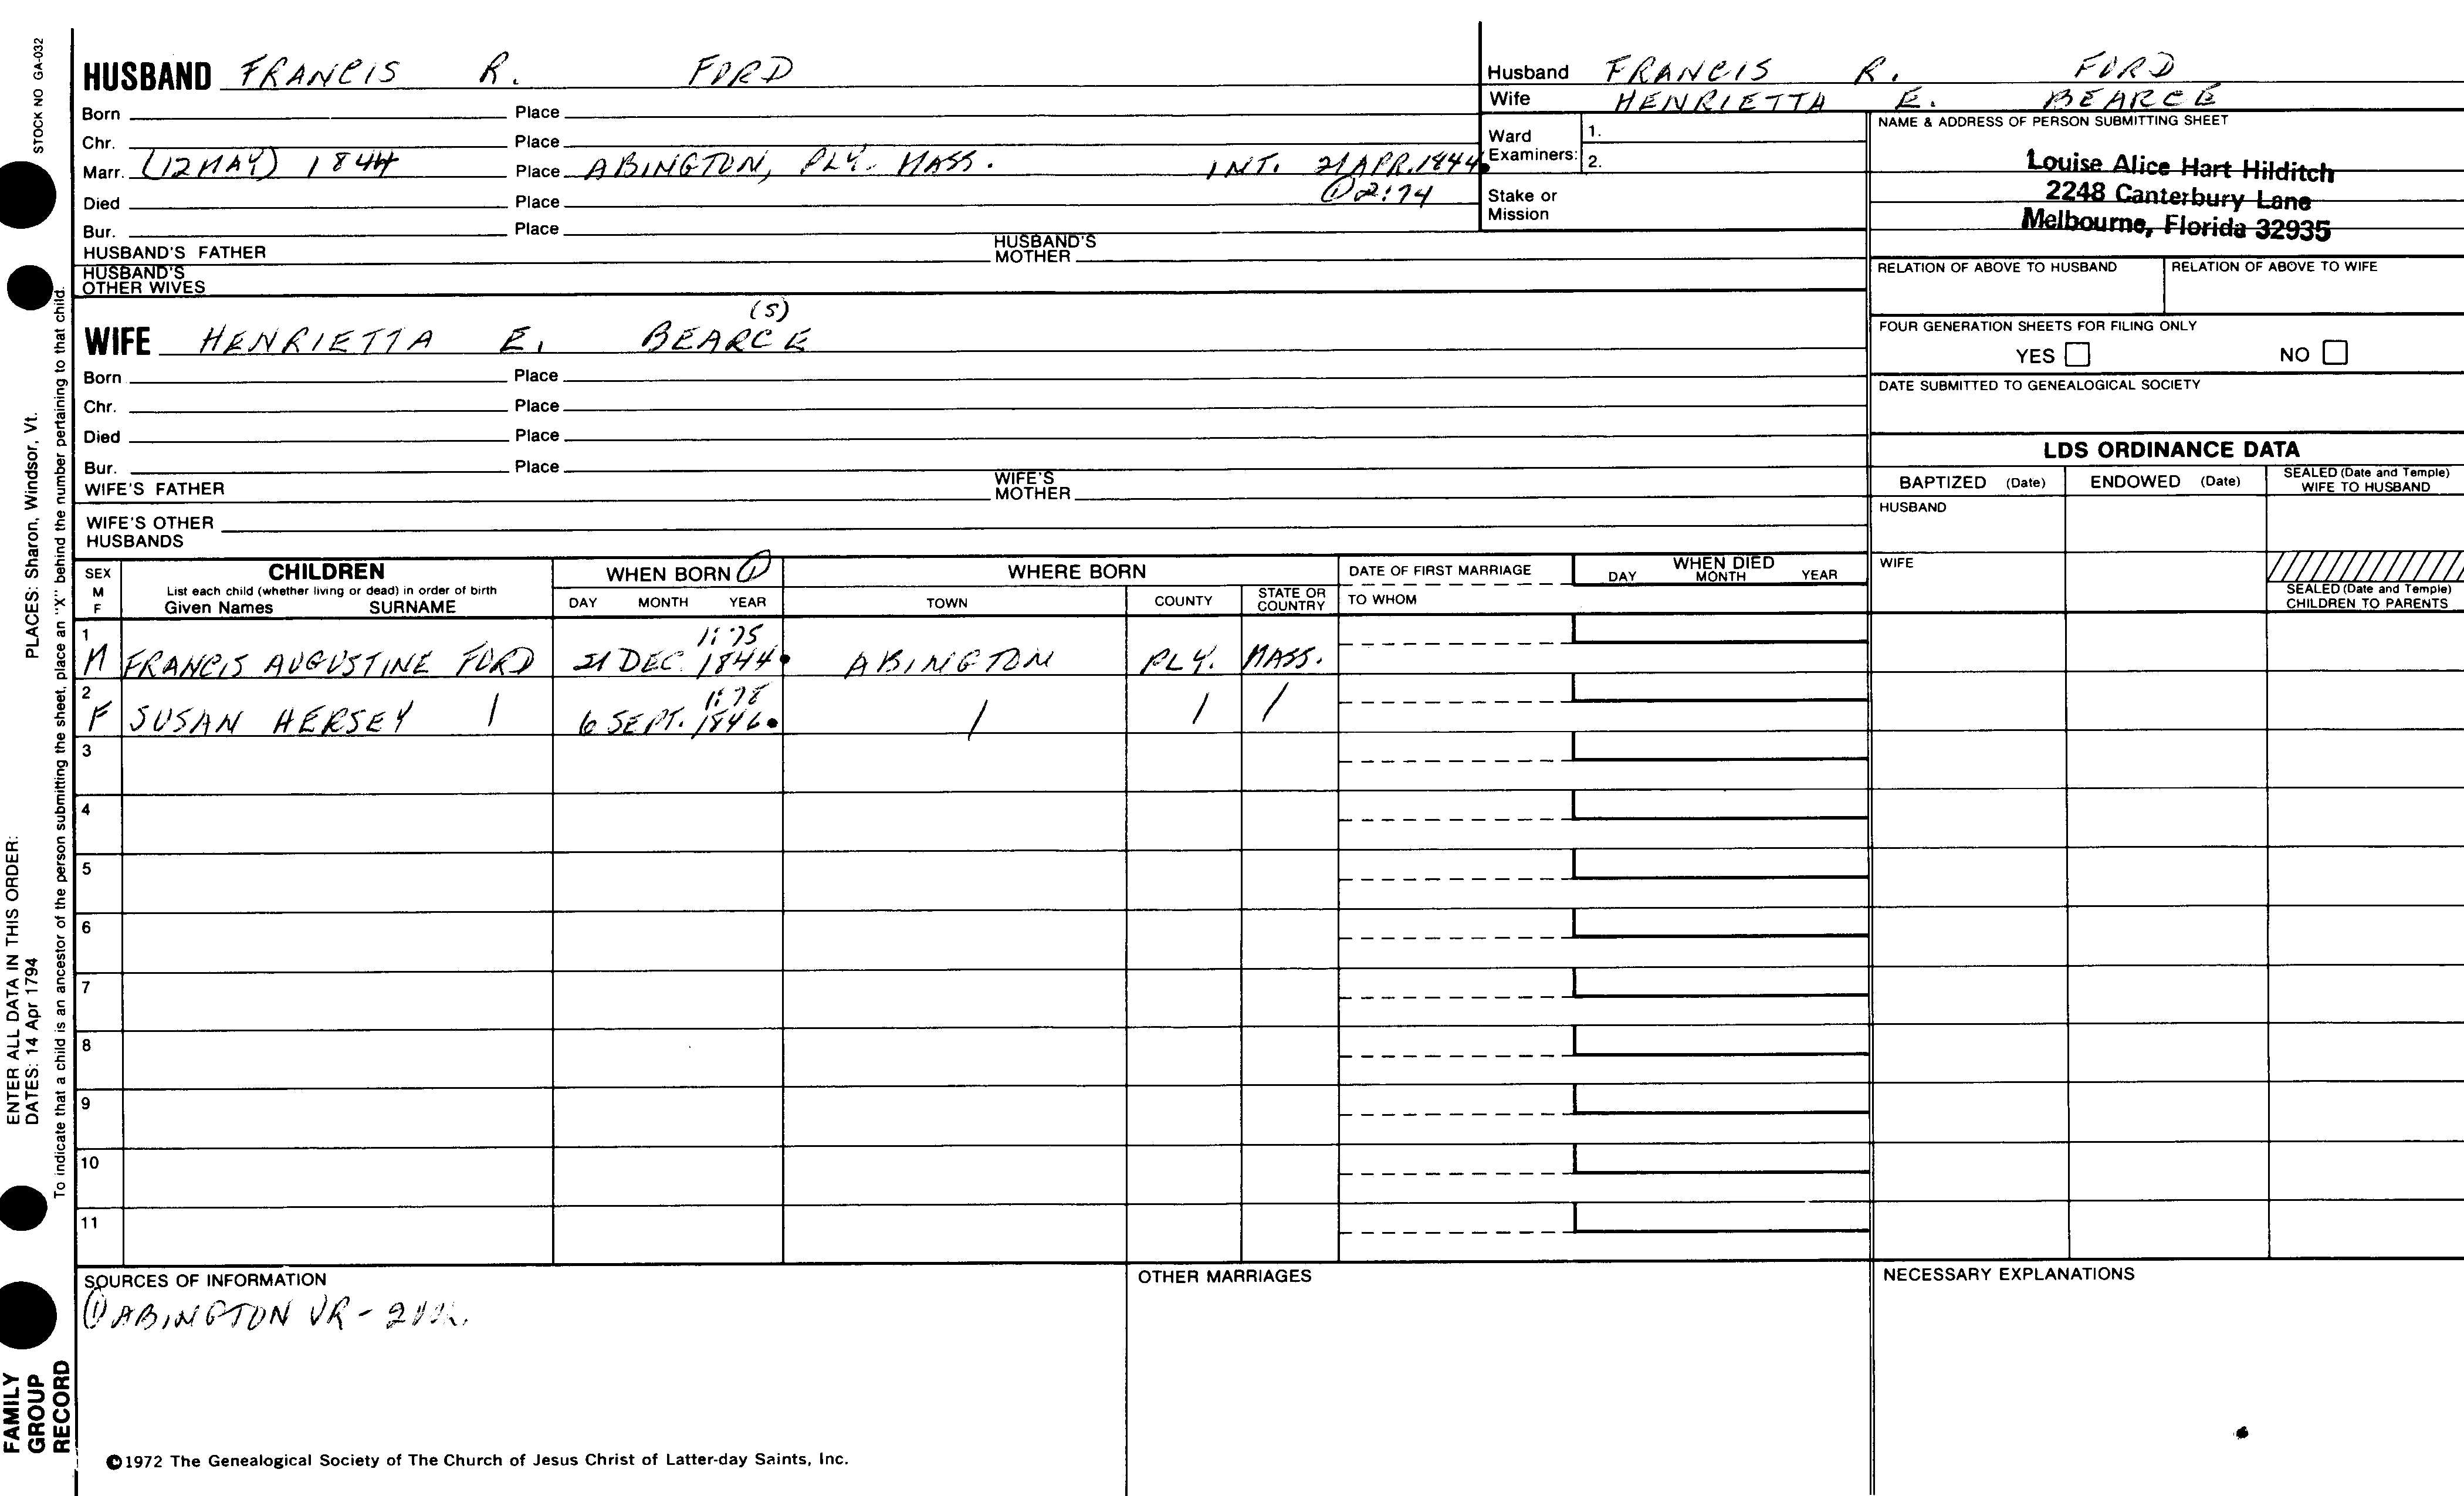 STOCK NO GA-032
HUSBAND FRANCIS R. FORD
Born Place
Chr. Place
Marr. (12 MAY) 1844 Place ABINGTON, PLY. MASS. INT. 21 APR. 1844.
① 2:74
Died Place
Bur. Place
HUSBAND'S FATHER HUSBAND'S MOTHER
HUSBAND'S OTHER WIVES
(S)
WIFE HENRIETTA E. BEARCE
Born Place
Chr. Place
Died Place
Bur. Place
WIFE'S FATHER WIFE'S MOTHER
WIFE'S OTHER HUSBANDS
Husband FRANCIS R. FORD
Wife HENRIETTA E. BEARCE
Ward Examiners: 1.
2.
Stake or Mission
NAME & ADDRESS OF PERSON SUBMITTING SHEET
Louise Alice Hart Hilditch
2248 Canterbury Lane
Melbourne, Florida 32935
RELATION OF ABOVE TO HUSBAND RELATION OF ABOVE TO WIFE
FOUR GENERATION SHEETS FOR FILING ONLY
YES NO
DATE SUBMITTED TO GENEALOGICAL SOCIETY
LDS ORDINANCE DATA
BAPTIZED (Date) ENDOWED (Date) SEALED (Date and Temple) WIFE TO HUSBAND
HUSBAND
WIFE
SEALED (Date and Temple) CHILDREN TO PARENTS
SEX M F
CHILDREN
List each child (whether living or dead) in order of birth
Given Names SURNAME
WHEN BORN ①
DAY MONTH YEAR
WHERE BORN
TOWN COUNTY STATE OR COUNTRY
DATE OF FIRST MARRIAGE
TO WHOM
WHEN DIED
DAY MONTH YEAR
1:75
1 M FRANCIS AUGUSTINE FORD 21 DEC. 1844. ABINGTON PLY. MASS.
1:78
2 F SUSAN HERSEY / 6 SEPT. 1846. / / /
3
4
5
6
7
8
9
10
11
SOURCES OF INFORMATION
① ABINGTON VR -
OTHER MARRIAGES
NECESSARY EXPLANATIONS
©1972 The Genealogical Society of The Church of Jesus Christ of Latter-day Saints, Inc.
PLACES: Sharon, Windsor, Vt.
To indicate that a child is an ancestor of the person submitting the sheet, place an "X" behind the number pertaining to that child.
ENTER ALL DATA IN THIS ORDER:
DATES: 14 Apr 1794
FAMILY
GROUP
RECORD